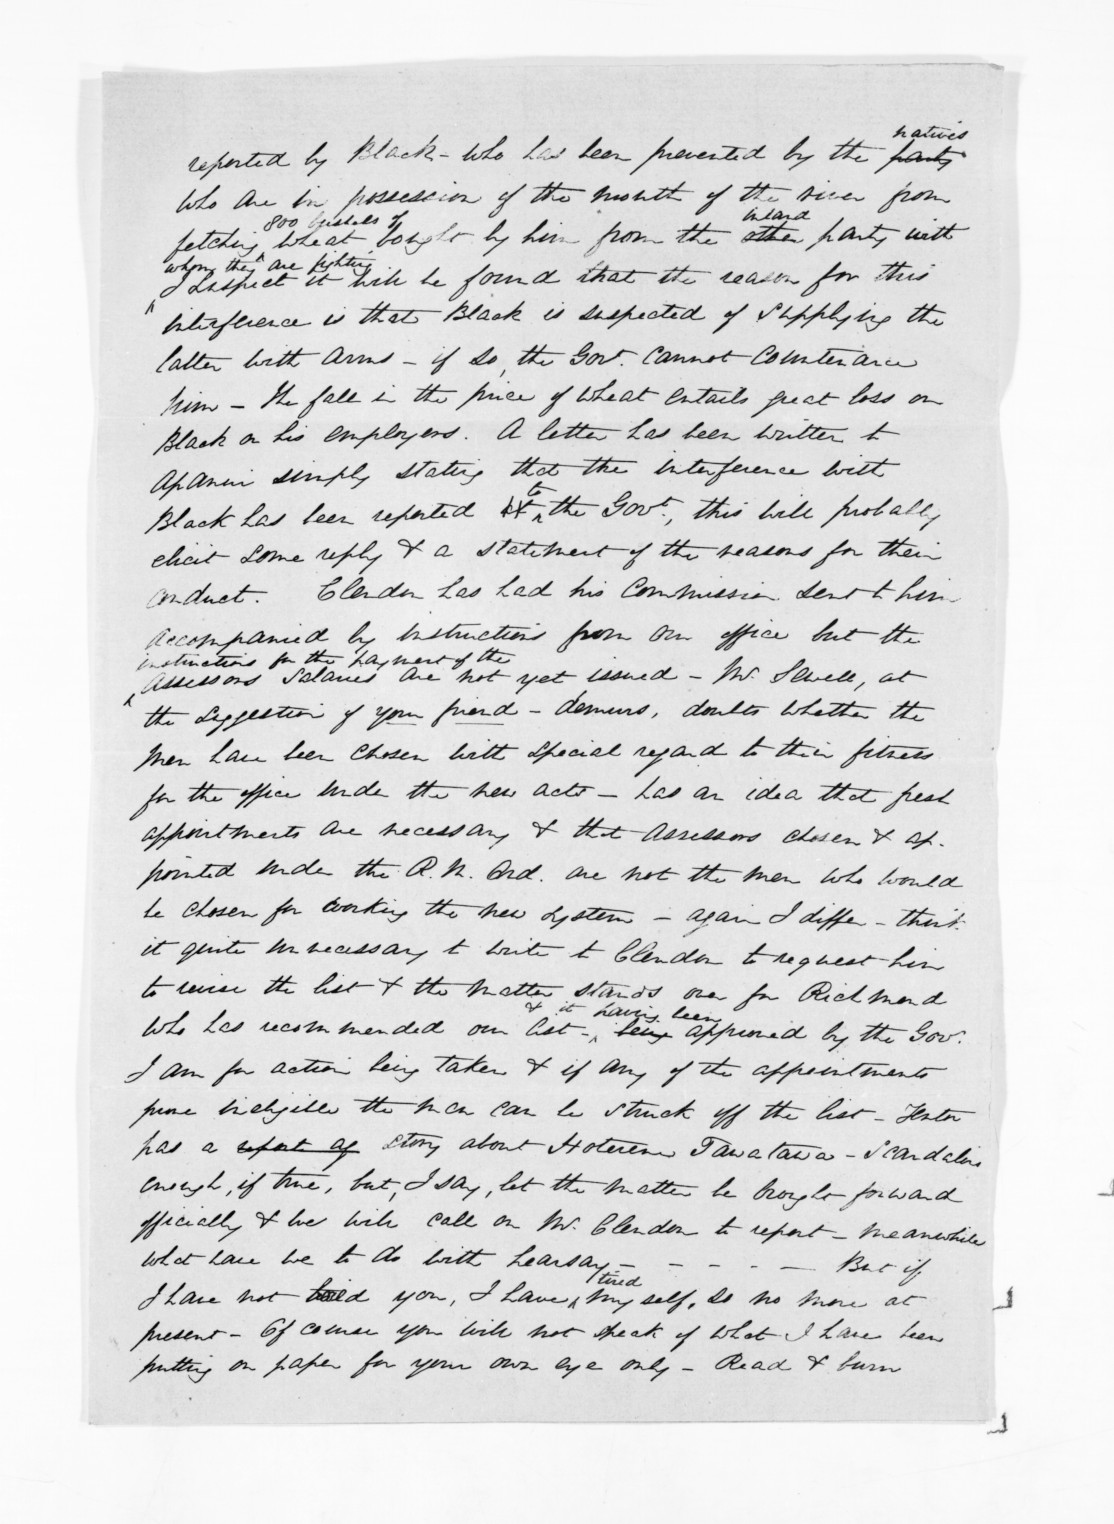 natives
reported by Black - who has been prevented by the party
who are in possession of the mouth of the river from
800 bushels of inland
fetching wheat bought by him from the other party with
whom they are fighting
I suspect it will be found that the reason for this
interference is that Black is suspected of supplying the
latter with Arms - if so, the Govt. cannot countenance
him - The fall in the price of wheat entails great loss on
Black or his employers. A letter has been written to
Apanui simply stating that the interference with
to
Black has been reported the Govt., this will probably
elicit some reply & a statement of the reasons for their
conduct. Clendon has had his Commission sent to him
accompanied by instructions from our office but the
instructions for the payment of the
Assessors Salaries are not yet issued - Mr. Sewell, at
the suggestion of your friend - demurs, doubts whether the
men have been chosen with special regard to their fitness
for the office under the new acts - has an idea that fresh
appointments are necessary & that Assessors chosen & ap-
pointed under the R.M. Ord. are not the men who would
be chosen for working the new system - again I differ - think
it quite unnecessary to write to Clendon to request him
to revise the list & the matter stands over for Richmond
& it having been
who has recommended our list - being approved by the Gov.
I am for action being taken & if any of the appointments
prove ineligible the man can be struck off the list - Fenton
has a report of story about Hoterene Tawatawa - Scandalous
enough, if true, but, I say, let the matter be brought forward
officially & we will call on Mr. Clendon to report - meanwhile
what have we to do with hearsay - - - - - But if
tired
I have not you, I have myself, so no more at
present - Of course you will not speak of what I have been
putting on paper for your own eye only - Read & burn